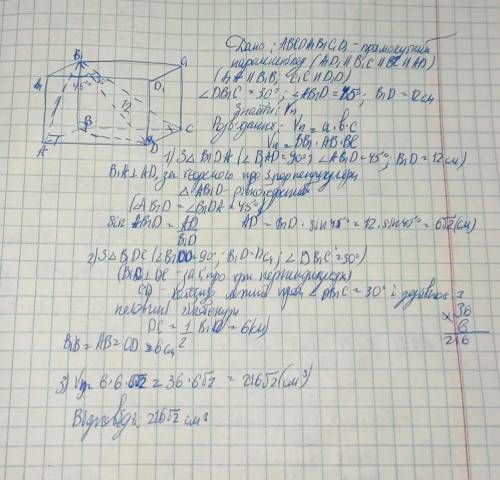 Дано: ABCDA1B1C1D1 - прямокутний
паралелепіпед (AD1 || B1C || BC || AD)
(A1A || B1B, C1C || D1D)
∠DB1C = 30°; ∠AB1D = 45°; B1D = 12 см
Знайти: Vп
Розв'язання: Vп = a·b·c
Vп = BB1 · AB · BC
1) З △ B1DA (∠B1AD = 90°; ∠AB1D = 45°; B1D = 12 см)
B1A ⊥ AD, за теоремою про 3 перпендикуляри
△ AB1D -
(∠AB1D = ∠B1DA = 45°)
sin AB1D = AD/B1D AD = B1D · sin45° = 12 · sin45° = 6√2 (см)
2) З △ B1DC (∠B1CD = 90°; B1D = 12 см; ∠DB1C = 30°)
(B1C ⊥ DC - за т про три перпендикуляри)
CD - катет, лежить проти ∠DB1C = 30° і дорівнює
половині гіпотенузи
DC = 1 B1D = 6 (см)
B1B = AB = CD = 6 см²
3) Vп = 6·6·6√2 = 36·6√2 = 216√2 (см³)
Відповідь: 216√2 см³
36
× 6
216
B1
C1
A1
D1
45°
12
B
C
A
D